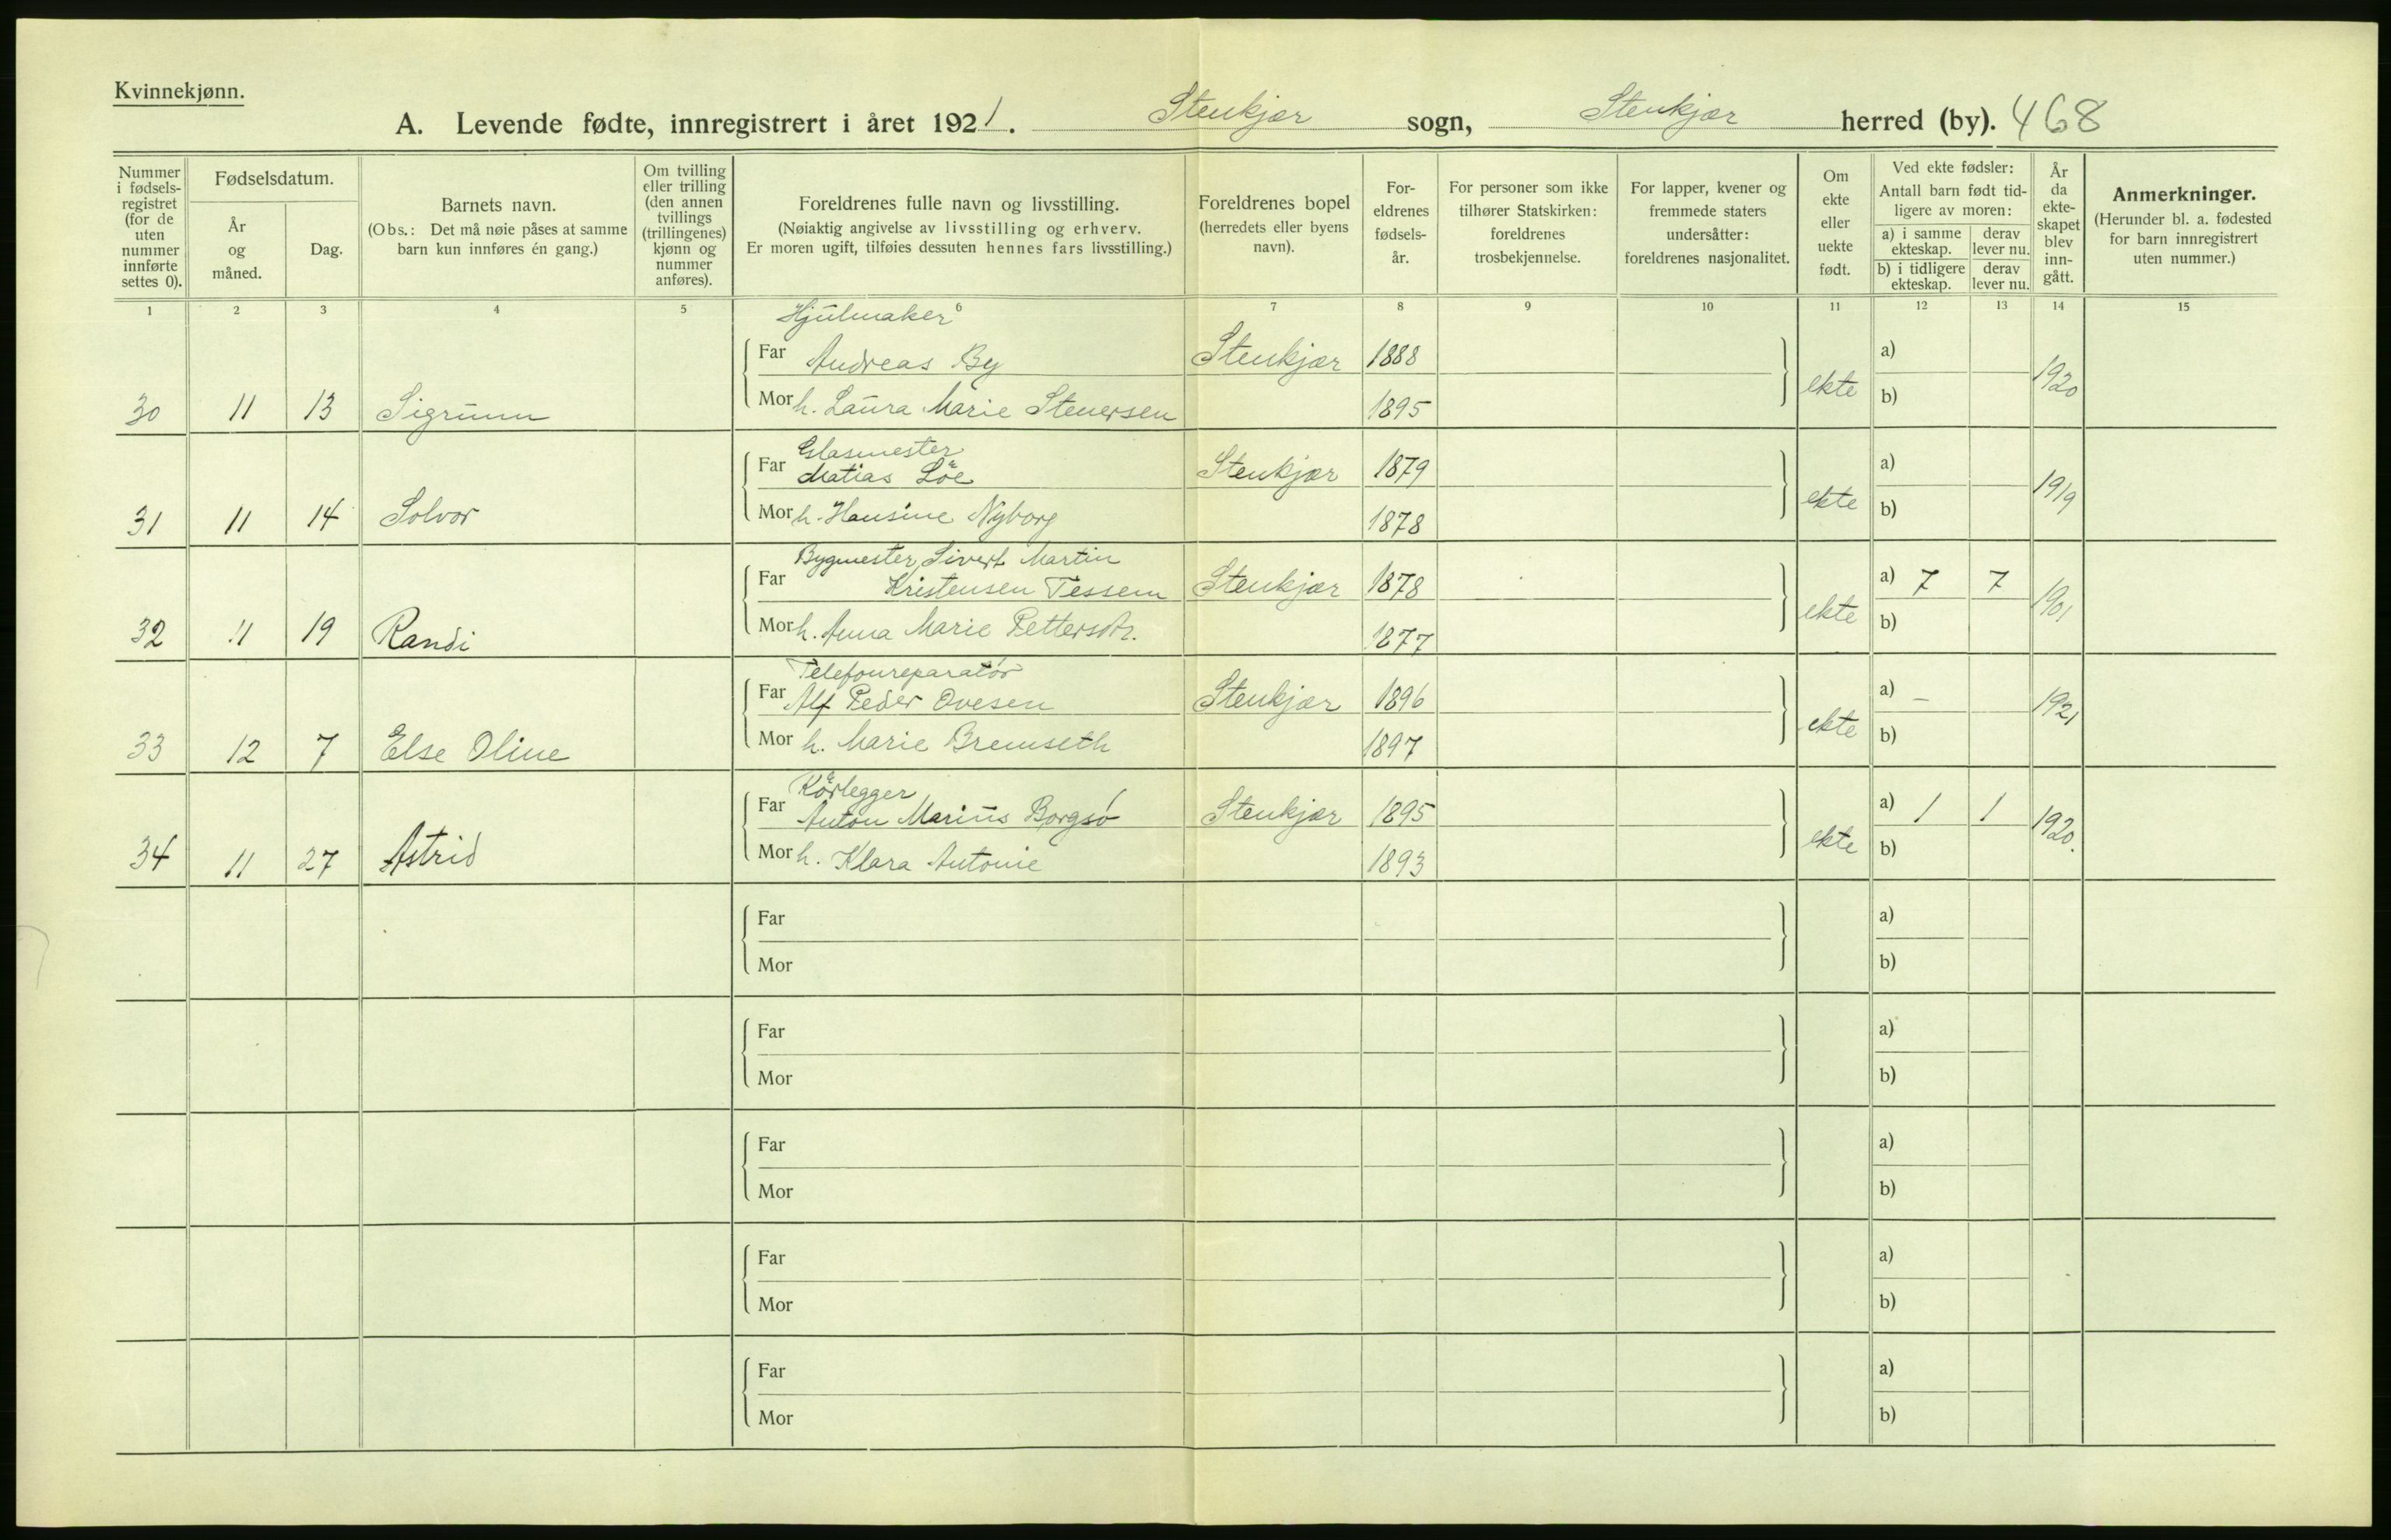 Kvinnekjønn.
A. Levende fødte, innregistrert i året 1921. Stenkjær sogn, Stenkjær herred (by). 468
Nummer i fødsels- registret (for de uten nummer innførte settes 0).
Fødselsdatum.
År og måned.
Dag.
Barnets navn.
(Obs.: Det må nøie påses at samme barn kun innføres én gang.)
Om tvilling eller trilling (den annen tvillings (trillingenes) kjønn og nummer anføres).
Foreldrenes fulle navn og livsstilling.
(Nøiaktig angivelse av livsstilling og erhverv.
Er moren ugift, tilføies dessuten hennes fars livsstilling.)
Foreldrenes bopel
(herredets eller byens navn).
For- eldrenes fødsels- år.
For personer som ikke tilhører Statskirken: foreldrenes trosbekjennelse.
For lapper, kvener og fremmede staters undersåtter: foreldrenes nasjonalitet.
Om ekte eller uekte født.
Ved ekte fødsler:
Antall barn født tid- ligere av moren:
a) i samme ekteskap.
derav lever nu.
b) i tidligere ekteskap.
derav lever nu.
År da ekte- skapet blev inn- gått.
Anmerkninger.
(Herunder bl. a. fødested for barn innregistrert uten nummer.)
1 2 3 4 5 6 7 8 9 10 11 12 13 14 15
Hjulmaker
Far Andreas By Stenkjær 1888 a)
30 11 13 Sigrunn Mor h. Laura Marie Stenersen 1895 ekte b) 1920
Glasmester
Far Matias Löe Stenkjær 1879 a)
31 11 14 Solvor Mor h. Hansine Nyborg 1878 ekte b) 1919
Bygmester Sivert Martin
Far Kristensen Tessem Stenkjær 1878 a) 7 7
32 11 19 Randi Mor h. Anna Marie Pettersdtr. 1877 ekte b) 1901
Telefonreparatör
Far Alf Peder Ovesen Stenkjær 1896 a) –
33 12 7 Else Oline Mor h. Marie Bremseth 1897 ekte b) 1921
Rörlegger
Far Anton Marius Borgsö Stenkjær 1895 a) 1 1
34 11 27 Astrid Mor h. Klara Antonie 1893 ekte b) 1920.
Far a)
Mor b)
Far a)
Mor b)
Far a)
Mor b)
Far a)
Mor b)
Far a)
Mor b)